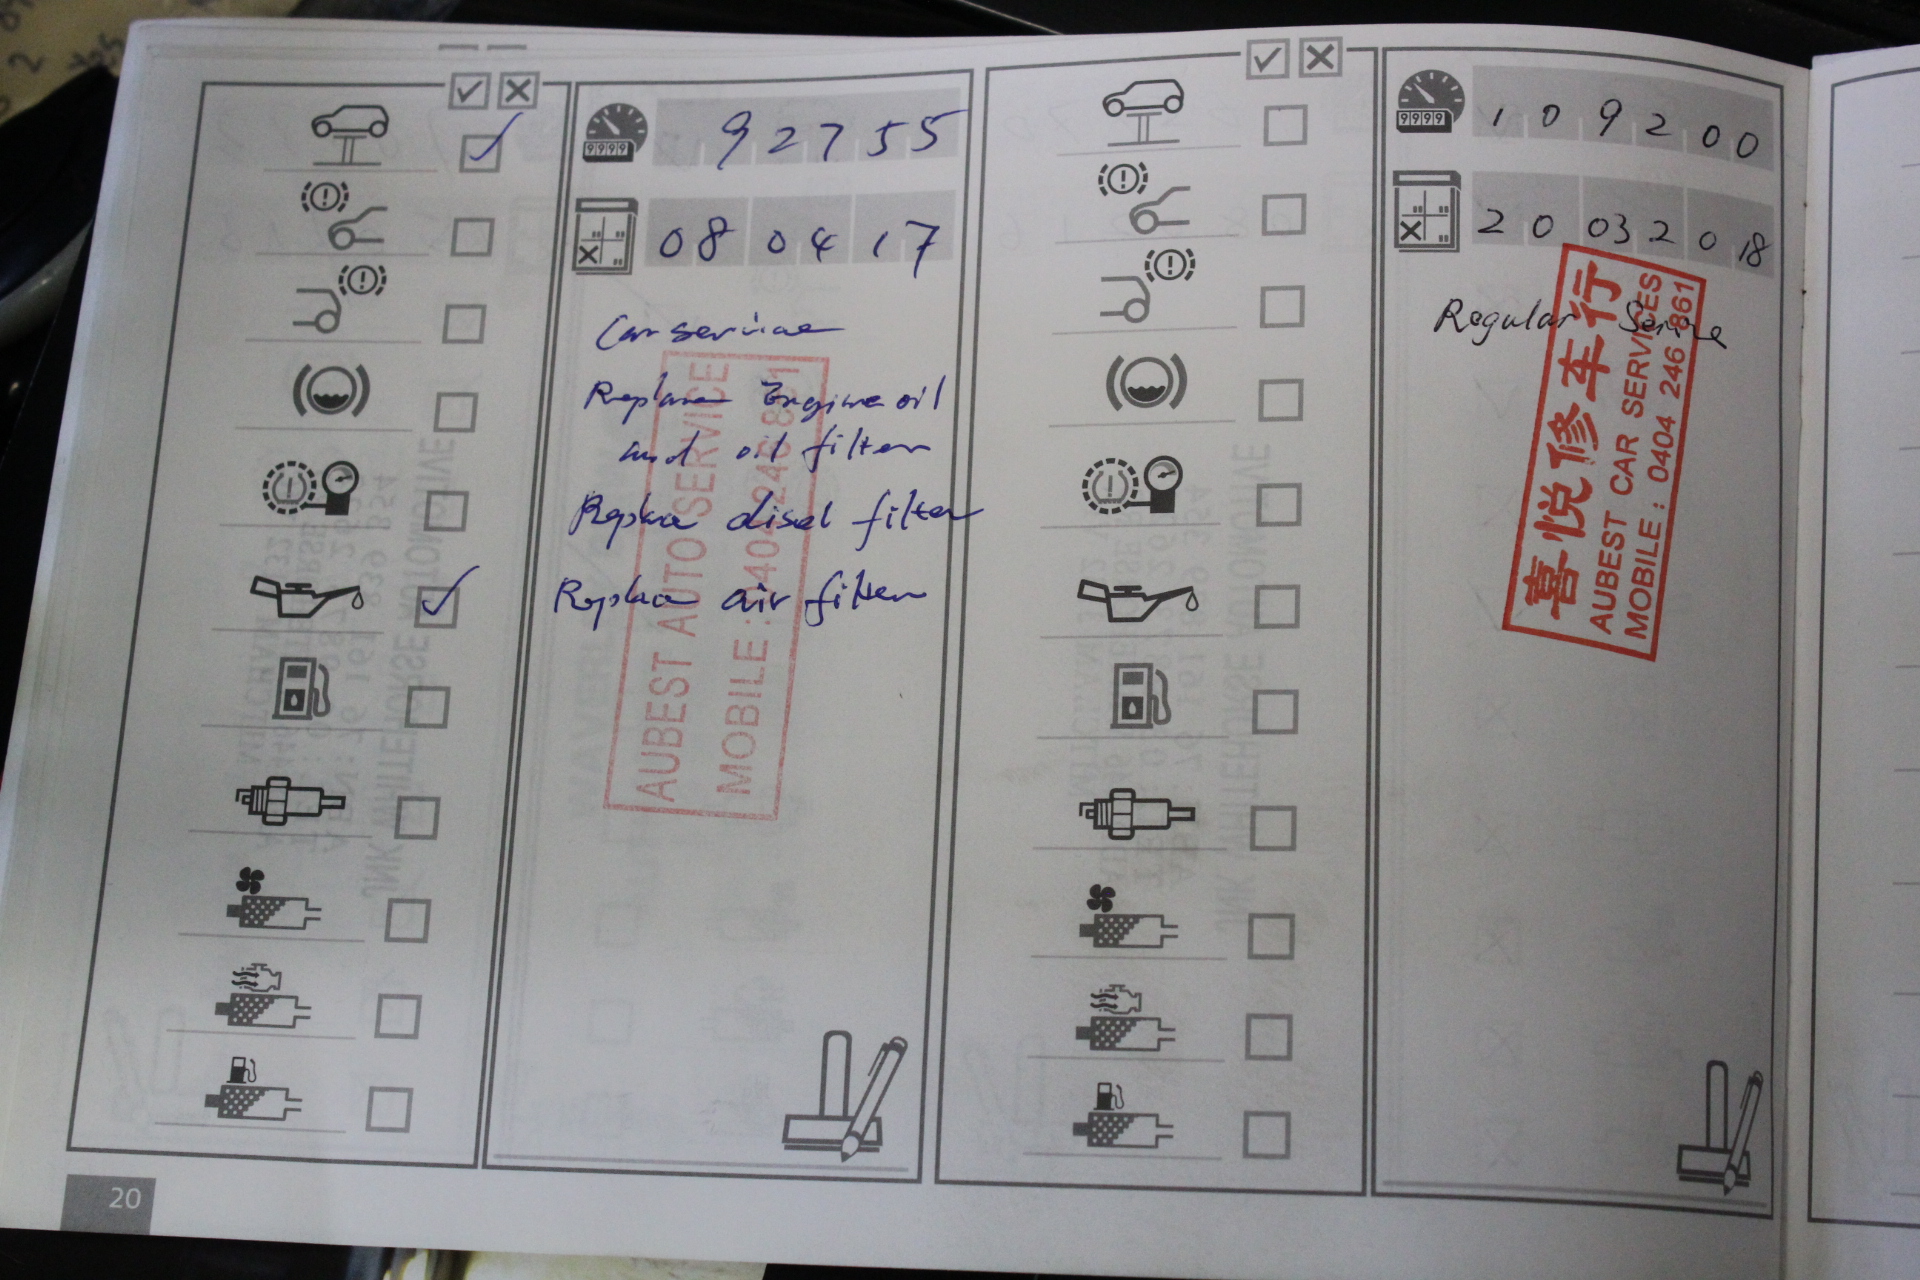 92755
08 04 17
Car service
Replace Engine oil
and oil filter
Replace disel filter
Replace air filter
AUBEST AUTO SERVICE
MOBILE: 0404 246 861
109200
20 03 2018
Regular Service
喜悦修车行
AUBEST CAR SERVICES
MOBILE: 0404 246 861
20